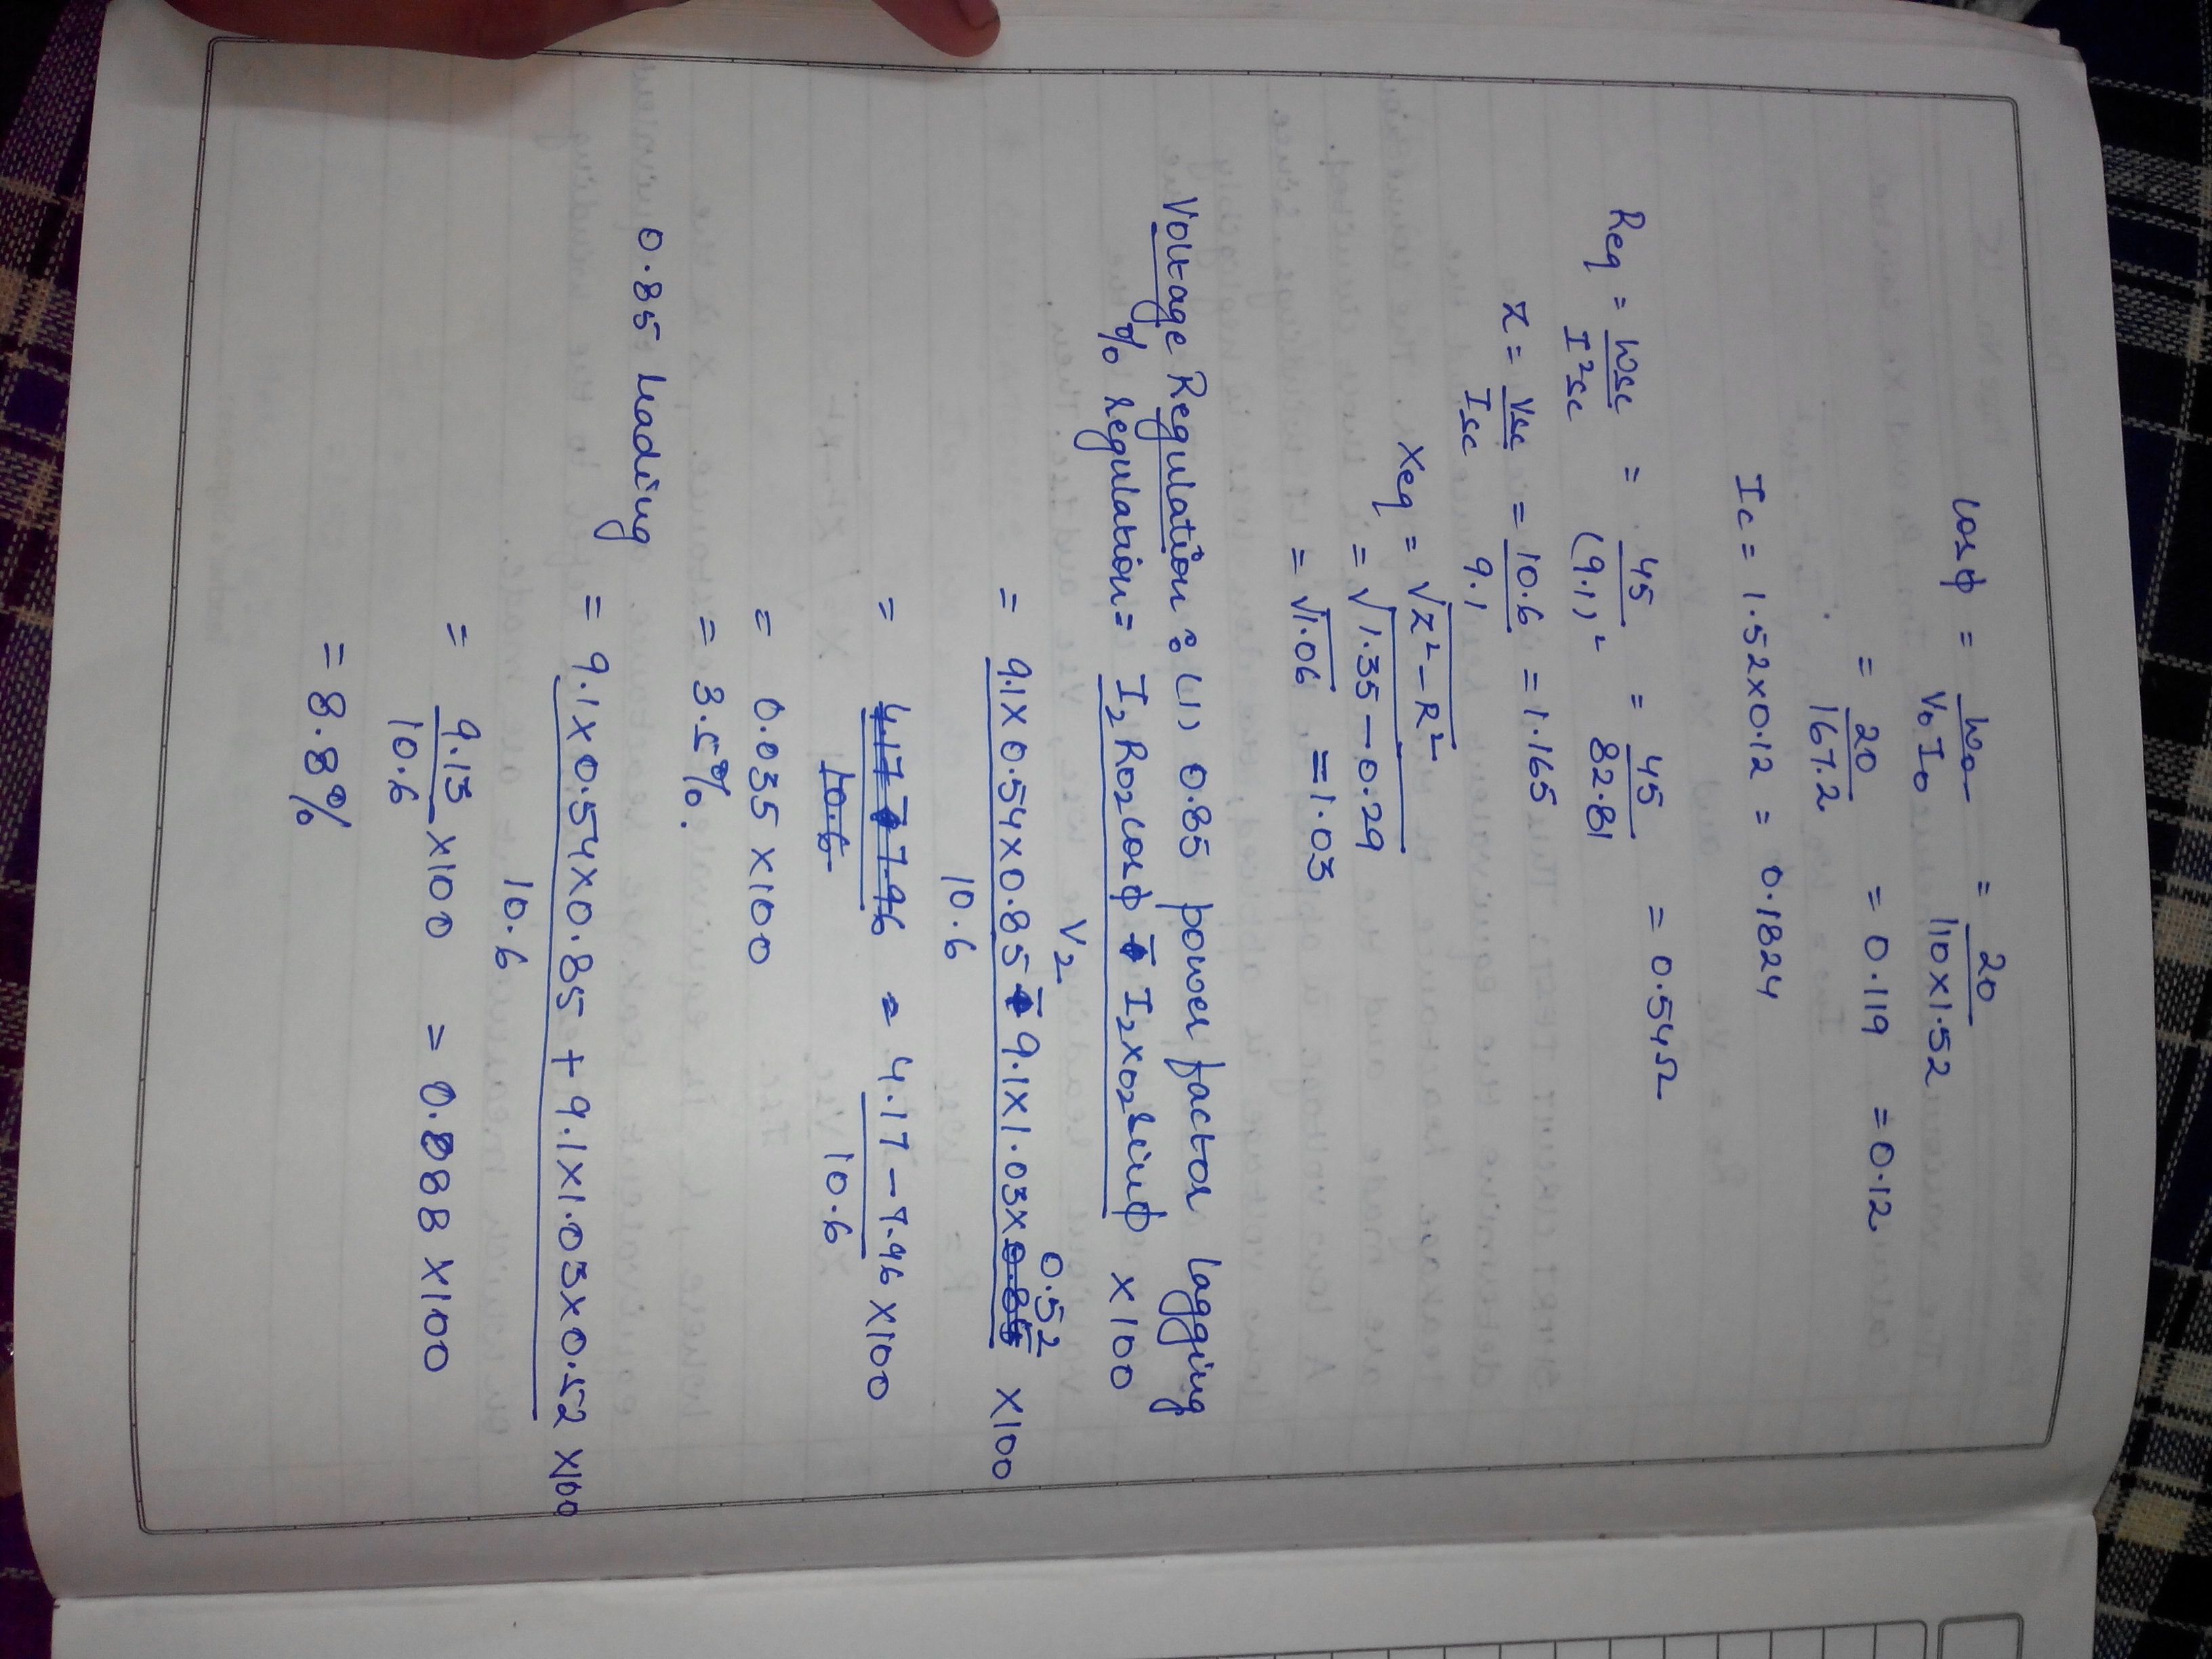 cosφ = Wo / VoIo = 20 / 110×1.52
= 20 / 167.2 = 0.119 = 0.12
Ic = 1.52×0.12 = 0.1824
Req = Wsc / I²sc = 45 / (9.1)² = 45 / 82.81 = 0.54Ω
Z = Vsc / Isc = 10.6 / 9.1 = 1.165
Xeq = √Z²-R²
= √1.35-0.29
= √1.06 = 1.03
Voltage Regulation : (1) 0.85 power factor lagging
% regulation = I₂Ro₂cosφ - I₂xo₂sinφ / V₂ ×100
= 9.1×0.54×0.85 - 9.1×1.03×0.52 / 10.6 ×100
= 4.17 - 7.96 / 10.6 = 4.17-7.96 / 10.6 ×100
= 0.035 ×100
= 3.5%.
0.85 leading
= 9.1×0.54×0.85 + 9.1×1.03×0.52 / 10.6 ×100
= 9.13 / 10.6 ×100 = 0.088 ×100
= 8.8%